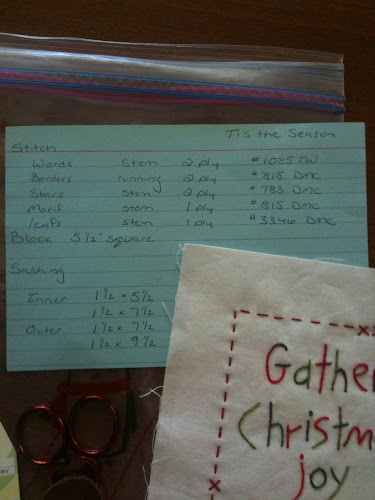 Tis the Season
Stitch
Words stem 2 ply # 1085 TW
Borders running 2 ply # 815 DMC
Stars stem 2 ply # 783 DMC
Motif stem 1 ply # 815 DMC
leafs stem 1 ply # 3346 DMC
Block 5 1/2" square
Sashing
Inner 1 1/2 x 5 1/2
1 1/2 x 7 1/2
Outer 1 1/2 x 7 1/2
1 1/2 x 9 1/2
Gather
Christm
joy
RY